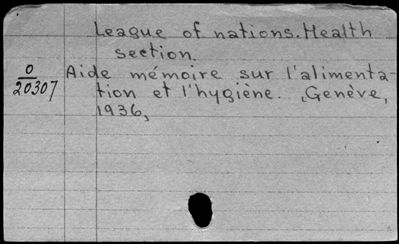 League of nations. Health
section.
O
20307
Aide mémoire sur l'alimenta-
tion et l'hygiène. ,Genève,
1936,